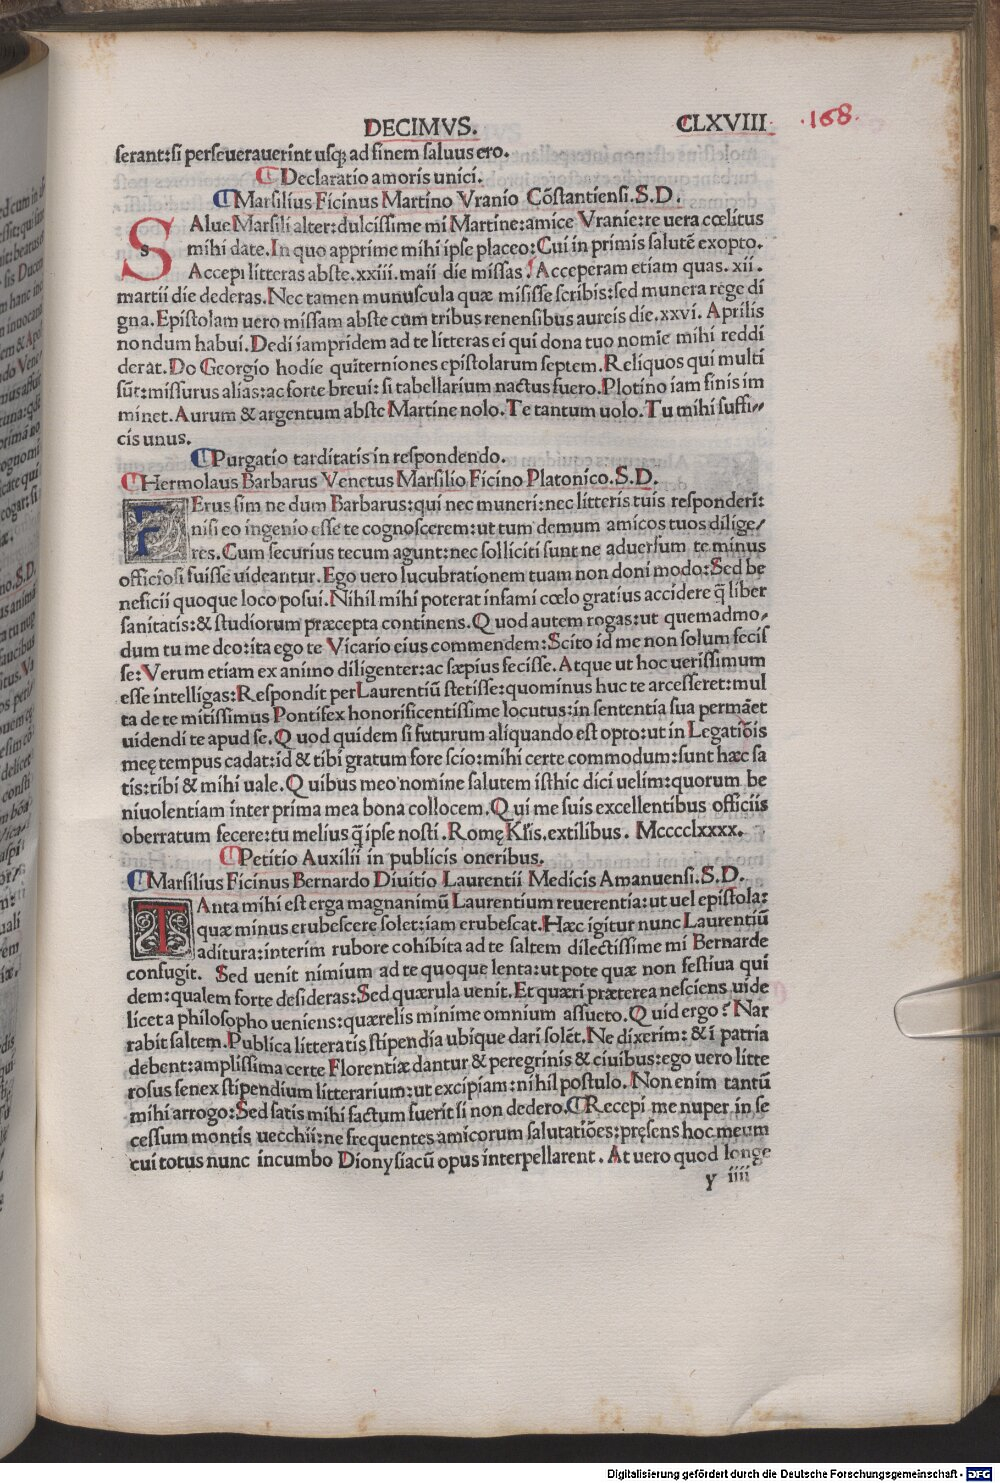 DECIMVS. CLXVIII ·168·
ſerant:ſi perſeuerauerint uſq; ad finem ſaluus ero.
¶Declaratio amoris unici.
¶Marſilius Ficinus Martino Vranio Cõſtantienſi.S.D.
S Alue Marſili alter:dulciſſime mi Martine:amice Vranie:re uera cœlitus
mihi date.In quo apprime mihi ipſe placeo:Cui in primis ſalutẽ exopto.
Accepi litteras abſte.xxiii.maii die miſſas.Acceperam etiam quas.xii.
martii die dederas.Nec tamen munuſcula quæ miſiſſe ſcribis:ſed munera rege di
gna.Epiſtolam uero miſſam abſte cum tribus renenſibus aureis die.xxvi.Aprilis
nondum habui.Dedi iampridem ad te litteras ei qui dona tuo nomie mihi reddi
derat.Do Georgio hodie quiterniones epiſtolarum ſeptem.Reliquos qui multi
ſũt:miſſurus alias:ac forte breui:ſi tabellarium nactus fuero.Plotino iam finis im
minet.Aurum & argentum abſte Martine nolo.Te tantum uolo.Tu mihi ſuffi//
cis unus.
¶Purgatio tarditatis in reſpondendo.
¶Hermolaus Barbarus Venetus Marſilio Ficino Platonico.S.D.
F Erus ſim ne dum Barbarus:qui nec muneri:nec litteris tuis reſponderi:
niſi eo ingenio eſſe te cognoſcerem:ut tum demum amicos tuos dilige/
res.Cum ſecurius tecum agunt:nec ſolliciti ſunt ne aduerſum te minus
officioſi fuiſſe uideantur.Ego uero lucubrationem tuam non doni modo:Sed be
neficii quoque loco poſui.Nihil mihi poterat inſami cœlo gratius accidere q̃ liber
ſanitatis:& ſtudiorum præcepta continens.Quod autem rogas:ut quemadmo/
dum tu me deo:ita ego te Vicario eius commendem:Scito id me non ſolum feciſ
ſe:Verum etiam ex animo diligenter:ac ſæpius feciſſe.Atque ut hoc ueriſſimum
eſſe intelligas:Reſpondit per Laurentiũ ſtetiſſe:quominus huc te arceſſeret:mul
ta de te mitiſſimus Pontifex honorificentiſſime locutus:in ſententia ſua permãet
uidendi te apud ſe.Quod quidem ſi futurum aliquando eſt opto:ut in Legatiõis
meę tempus cadat:id & tibi gratum fore ſcio:mihi certe commodum:ſunt hæc ſa
tis:tibi & mihi uale.Quibus meo nomine ſalutem iſthic dici uelim:quorum be
niuolentiam inter prima mea bona collocem.Qui me ſuis excellentibus officiis
oberratum fecere:tu melius q̃ ipſe noſti.Romę Kl̃is.extilibus.Mcccclxxxx.
¶Petitio Auxilii in publicis oneribus.
¶Marſilius Ficinus Bernardo Diuitio Laurentii Medicis Amanuenſi.S.D.
T Anta mihi eſt erga magnanimũ Laurentium reuerentia:ut uel epiſtola:
quæ minus erubeſcere ſolet:iam erubeſcat.Hæc igitur nunc Laurentiũ
aditura:interim rubore cohibita ad te ſaltem dilectiſſime mi Bernarde
confugit. Sed uenit nimium ad te quoque lenta:ut pote quæ non feſtiua qui
dem:qualem forte deſideras:Sed quærula uenit.Et quæri præterea neſciens uide
licet a philoſopho ueniens:quærelis minime omnium aſſueto.Quid ergo? Nar
rabit ſaltem.Publica litteratis ſtipendia ubique dari ſolẽt.Ne dixerim:& ĩ patria
debent:ampliſſima certe Florentiæ dantur & peregrinis & ciuibus:ego uero litte
roſus ſenex ſtipendium litterarium:ut excipiam:nihil poſtulo.Non enim tantũ
mihi arrogo:Sed ſatis mihi factum fuerit ſi non dedero.¶Recepi me nuper in ſe
ceſſum montis uecchii:ne frequentes amicorum ſalutatiões:pręſens hoc meum
cui totus nunc incumbo Dionyſiacũ opus interpellarent.At uero quod longe
y iiii
Digitalisierung gefördert durch die Deutsche Forschungsgemeinschaft - DFG